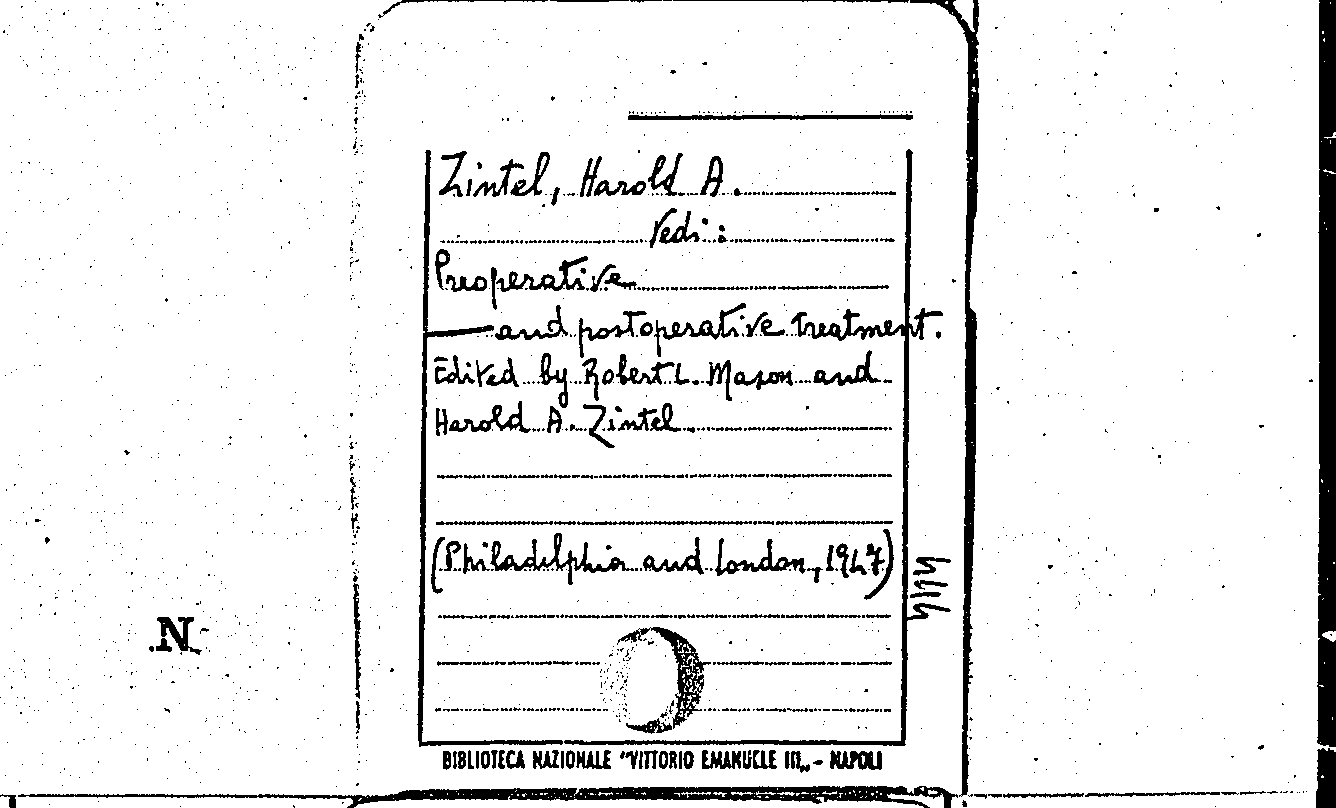 Zintel, Harold A.
Vedi:
Preoperative
— and postoperative treatment.
Edited by Robert L. Mason and
Harold A. Zintel.
(Philadelphia and London, 1947)
N
BIBLIOTECA NAZIONALE "VITTORIO EMANUELE III„ - NAPOLI